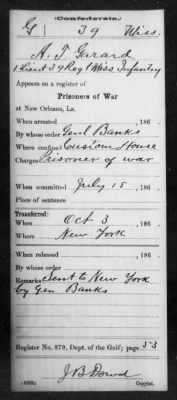 (Confederate.)
G 39 Miss.
A. T. Garard
1 Lieut 39 Reg't Miss Infantry
Appears on a register of
Prisoners of War
at New Orleans, La.
When arrested , 186 .
By whose order Genl Banks
Where confined Custom House
Charges Prisoner of war
When committed July 15 , 186 .
Place of sentence
Transferred:
When Oct 3 , 186 .
Where New York
When released , 186 .
By whose order
Remarks Sent to New York
by Gen Banks
Register No. 879, Dept. of the Gulf; page 53
J B Dowd
Copyist.